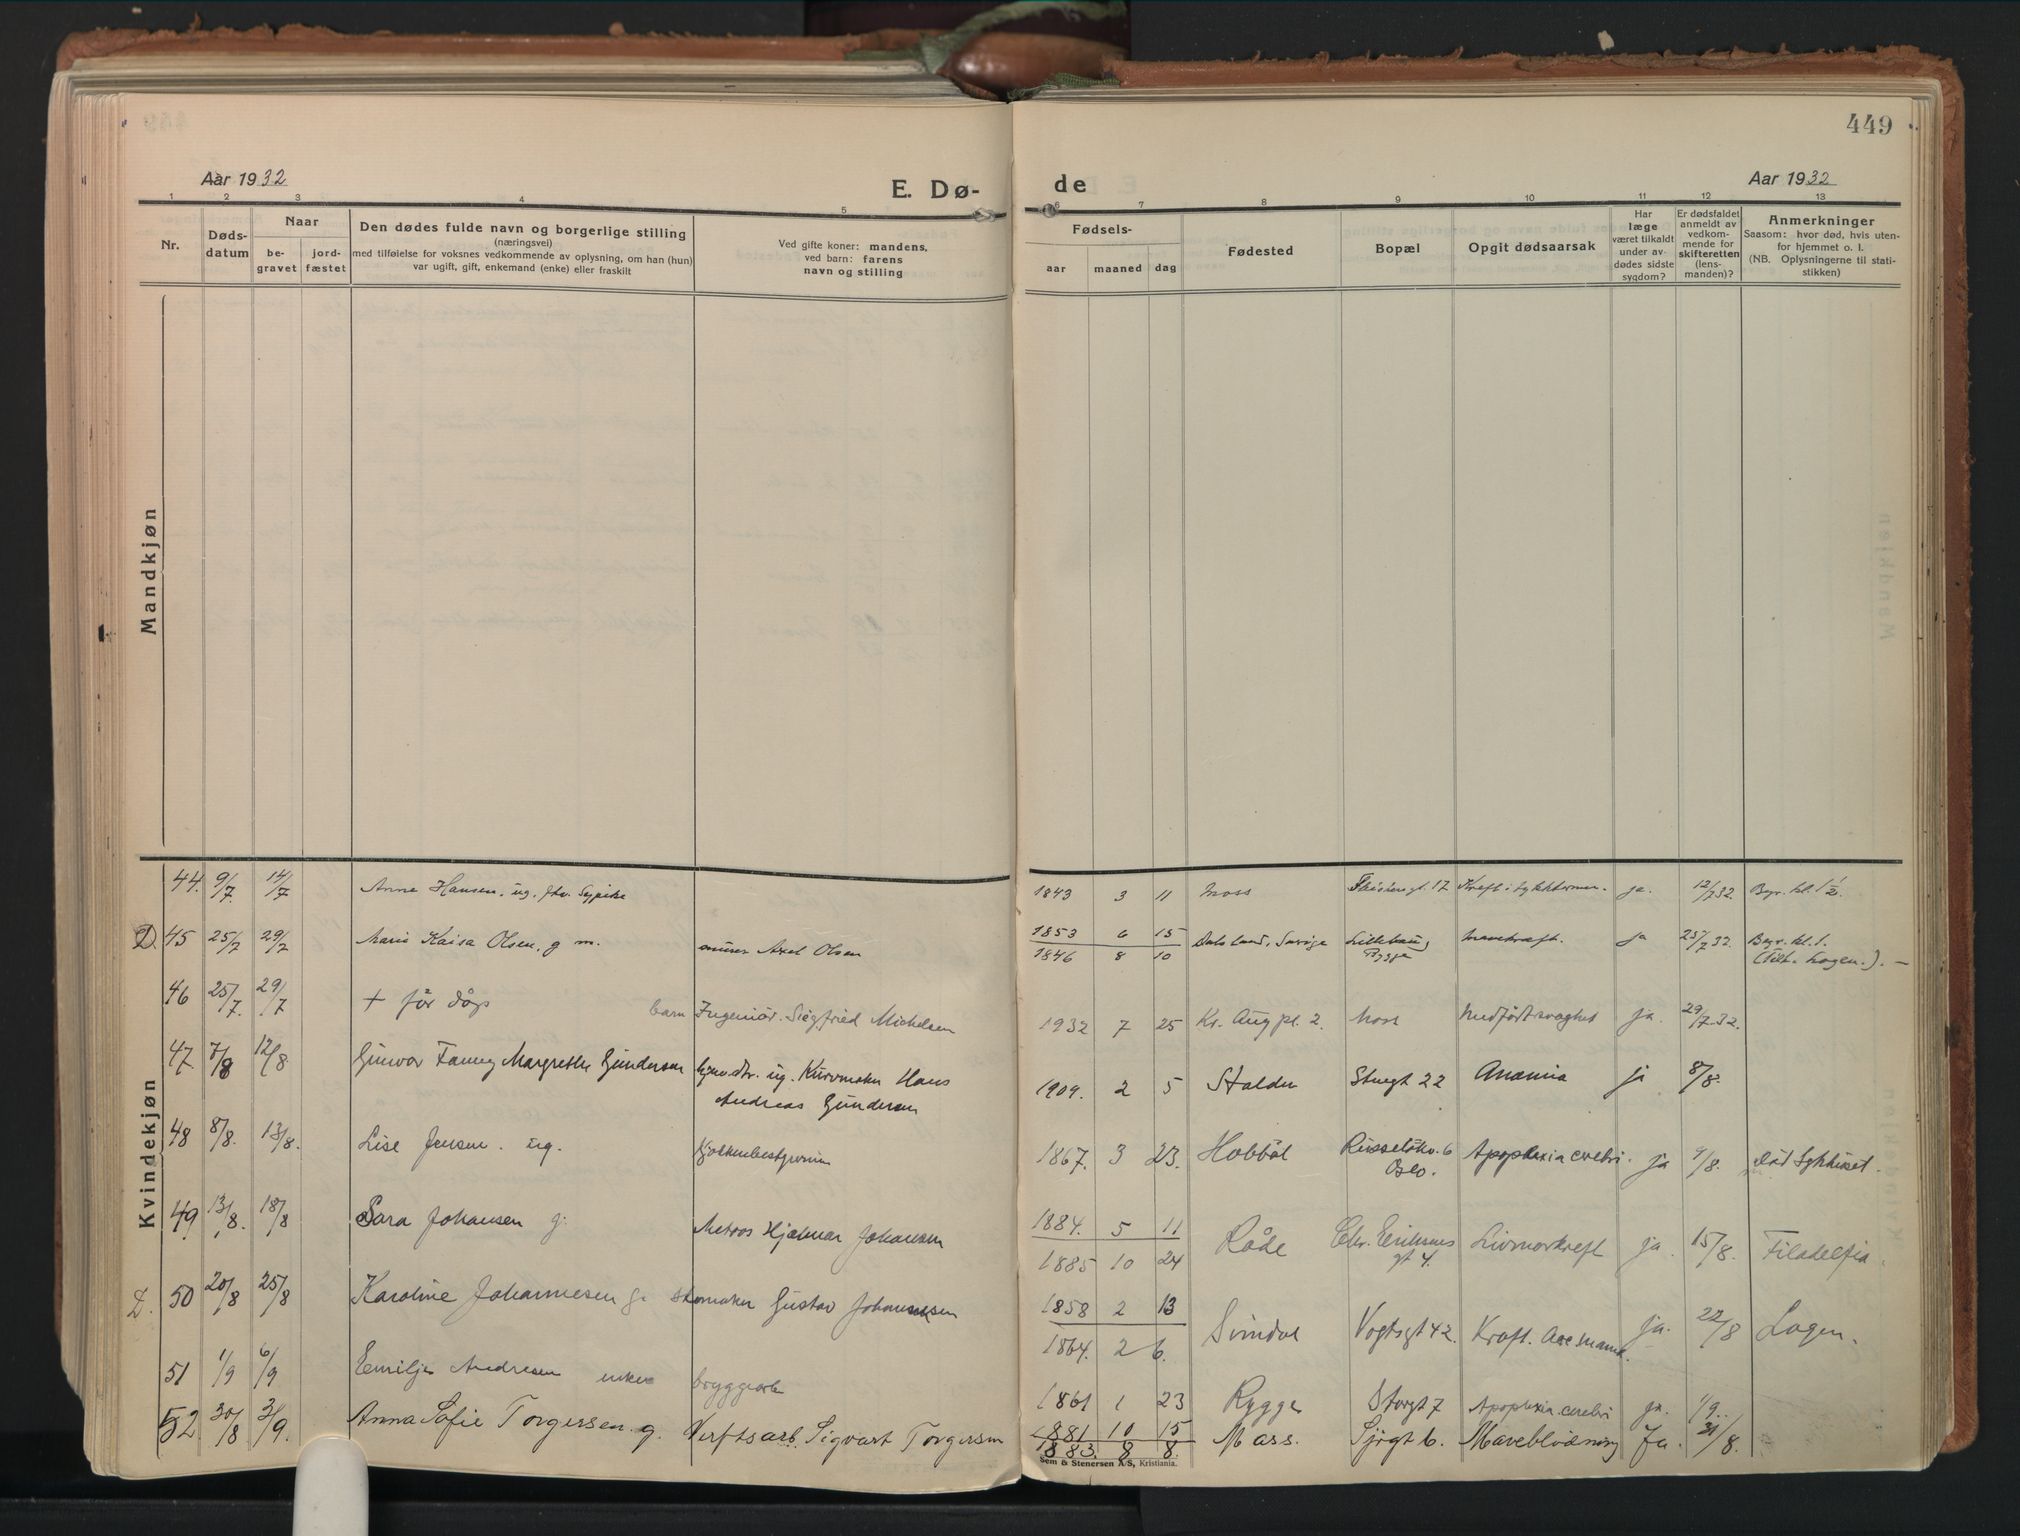 449
Aar 1932
E. Dø-
de
Aar 1932
1 2 3 4 5 6 7 8 9 10 11 12 13
Nr.
Døds-
datum
Naar
be-
gravet
jord-
fæstet
Den dødes fulde navn og borgerlige stilling
(næringsvei)
med tilføielse for voksnes vedkommende av oplysning, om han (hun)
var ugift, gift, enkemand (enke) eller fraskilt
Ved gifte koner: mandens,
ved barn: farens
navn og stilling
Fødsels-
aar maaned dag
Fødested
Bopæl
Opgit dødsaarsak
Har
læge
været tilkaldt
under av-
dødes sidste
sygdom?
Er dødsfaldet
anmeldt av
vedkom-
mende for
skifteretten
(lens-
manden)?
Anmerkninger
Saasom: hvor død, hvis uten-
for hjemmet o. l.
(NB. Oplysningerne til stati-
stikken)
Mandkjøn
Kvindekjøn
44. 9/7. 14/7 Anne Hansen, ug. fhv. Sypike 1843 3 11 Moss 17 Kreft i ja. 12/7 32. Byr. kl. 1 1/2.
D. 45 25/7 29/7 Marie Kaisa Olsen. g m. murer Axel Olsen 1853 6 15 Dalsland, Sverige Lillehaug Mavekreft. ja 25/7 32. Byr. kl. 1.
1846 8 10 Rygge (Tilh. Logen.). —
46 25/7. 29/7 + før dåp barn Ingeniør. Siegfried Michelsen 1932 7 25 Kr. Aug pl. 2. Moss Medfødt svaghet ja. 29/7 32.
47 7/8 12/8 Gunvor Fanny Margrethe Gundersen ug. Kurvmaker Hans 1909. 2 5 Halden Storgt 22 Anæmia ja 8/8.
Andreas Gundersen
48 8/8. 13/8. Lise Jensen. ug. Kjøkkenbestyrerinne 1867. 3 23. Hobbøl 6 Apoplexia cerebri. ja 9/8. død Sykhuset.
Oslo.
49 13/8. 18/8 Sara Johansen g. Matros Hjalmar Johansen 1884. 5 11 Råde Chr. Eriksens Livmorkreft ja. 15/8. Filadelfia.
1885 10 24 gt 4.
D. 50 20/8 25/8 Karoline Johannesen g. skomaker Gustav Johannesen 1858 2 13 Svindal Vogtsgt 42. Kreft. ja. 22/8 Logen.
1864. 2 6.
51 1/9 6/9 Emilje Andresen enke bryggearb 1861 1 23 Rygge Storgt 7 Apoplexia cerebri ja. 1/9.
52 30/8 3/9. Anna Sofie Torgersen. g. Verftsarb. Sigvart Torgersen 1881 10 15 Moss. Sjøgt 6. Maveblødning Ja. 31/8.
1883. 8 8.
Sem & Stenersen A/S, Kristiania.